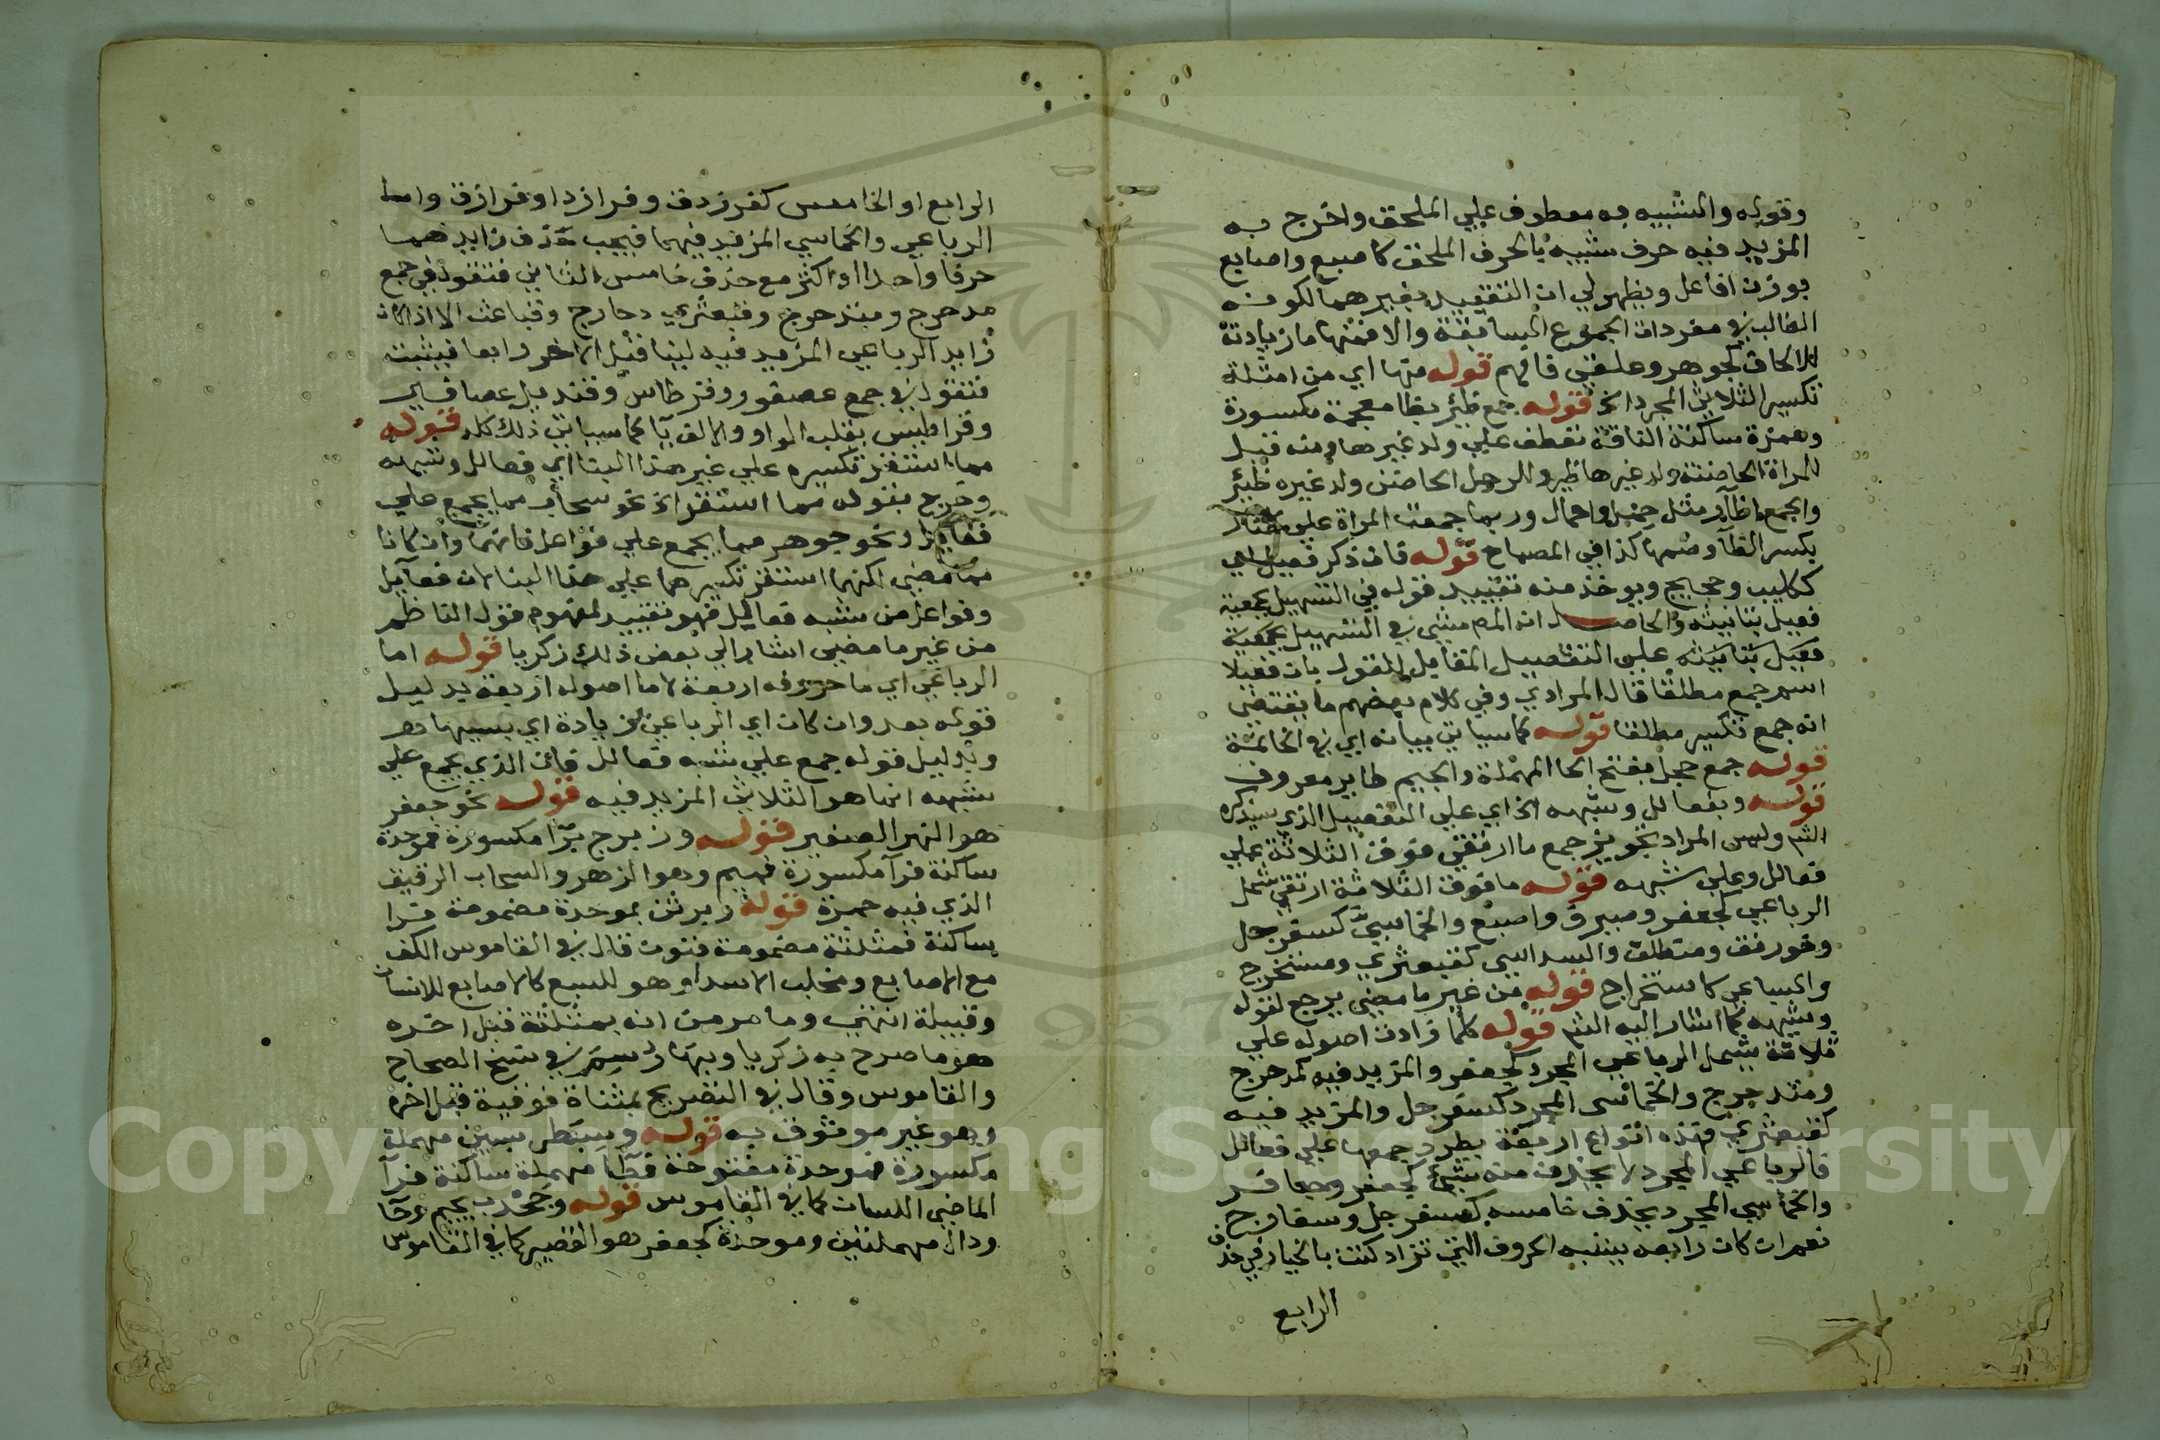 وقوله والشبيه به معطوف علي الملحق واخرج به
المزيد فيه حرف شبيه بالحرف الملحق كاصبع واصابع
بوزن افاعل ويظهر لي ان التقييد بغيرهما لكونه
الغالب في مفردات الجموع السابقة والا فمنها ما زيادته
للالحاق كجوهر وعلقي فافهم قوله منها اي من امثلة
تكسير الثلاثي المجرد الخ قوله جمع ظئر بظا معجمة مكسورة
وهمزة ساكنة الناقة تعطف علي ولد غيرها ومنه قيل
للمراة الحاضنة ولد غيرها ظير وللرجل الحاضن ولد غيره ظئر
والجمع اظآر مثل حمل واحمال وربما جمعت المراة علي ظئار
بكسر الظآ وضمها كذا في المصباح قوله فان ذكر فعيل اي
ككليب وحجيج ويوخذ منه تقييد قوله في التسهيل بجمعية
فعيل بتانيثه والحاصل انه لم يمش في التسهيل بجمعية
فعيل بتانيثه علي التفصيل المقابل للقول بان فعيلا
اسم جمع مطلقا قال المرادي وفي كلام بعضهم ما يقتضي
انه جمع تكسير مطلقا قوله كما سياتي بيانه اي في الخاتمة
قوله جمع حجل بفتح الحا المهملة والجيم طاير معروف
قوله وبفعالل وشبهه الخ اي علي التفصيل الذي سيذكره
الشم وليس المراد تجويز جمع ما ارتقي فوق الثلاثة علي
فعالل وعلي شبهه قوله ما فوق الثلاثة ارتقي شمل
الرباعي كجعفر وصيرف واصبع والخماسي كسفرجل
وخورنق ومنطلق والسداسي كقبعثري ومستخرج
والسباعي كاستخراج قوله من غير ما مضي يرجع لقوله
وشبهه كما اشار اليه الشم قوله كلما زادت اصوله علي
ثلاثة يشمل الرباعي المجرد كجعفر والمزيد فيه كمدحرج
ومتدحرج والخماسي المجرد كسفرجل والمزيد فيه
كقبعثري فهذه انواع اربعة يطرد جمعها علي فعالل
فالرباعي المجرد لا يحذف منه شئ كجعفر وجعافر
والخماسي المجرد يحذف خامسه كسفرجل وسفارج
نعم ان كان رابعه يشبه الحروف التي تزاد كنت بالخيار في حذف
الرابع
الرابع او الخامس كفرزدق وفرازد او فرازق واما
الرباعي والخماسي المزيد فيهما فيجب حذف زايدهما
حرفا واحدا او اكثر مع حذف خامس الثاني فتقول في جمع
مدحرج ومتدحرج وقبعثري دحارج وقباعث الا اذا كان
زايد الرباعي المزيد فيه لينا قبل الاخر رابعا فيثبت
فتقول في جمع عصفور وقرطاس وقنديل عصافير
وقراطيس بقلب الواو والالف يآ كما سياتي ذلك كله قوله
مما استقر تكسيره علي غير هذا البنا اي فعالل وشبهه
وخرج بقوله مما استقر الخ نحو سحاب مما يجمع علي
فعايل ونحو جوهر مما يجمع علي فواعل فانهما وان كانا
مما مضي لكنهما استقر تكسيرهما علي هذا البنا لان فعآيل
وفواعل من شبه فعالل فهو تقييد لمفهوم قول الناظم
من غير ما مضي اشار الي بعض ذلك زكريا قوله اما
الرباعي اي ما حروفه اربعة لا ما اصوله اربعة بدليل
قوله بعد وان كان اي الرباعي بزيادة اي بسببها دهر
وبدليل قوله جمع علي شبه فعالل فان الذي يجمع علي
شبهه انما هو الثلاثي المزيد فيه قوله نحو جعفر
هو النهر الصغير قوله وزبرج بزا مكسورة فموحدة
ساكنة فرآ مكسورة فجيم وهو الزهر والسحاب الرقيق
الذي فيه حمرة قوله وبرثن بموحدة مضمومة فرا
ساكنة فمثلثة مضمومة فنون قال في القاموس الكف
مع الاصابع ومخلب الاسد او هو للسبع كالاصابع للانسان
وقبيلة انتهي وما مر من انه بمثلثة قبل اخره
هو ما صرح به زكريا وبها رسم في نسخ الصحاح
والقاموس وقال في التصريح بمثناة فوقية قبل اخره
وهو غير موثوق به قوله وسبطر بسين مهملة
مكسورة فموحدة مفتوحة فطآ مهملة ساكنة فرآ
الماضي اللسان كما في القاموس قوله وجحدب بجيم وحآ
ودال مهملتين وموحدة كجعفر هو القصير كما في القاموس